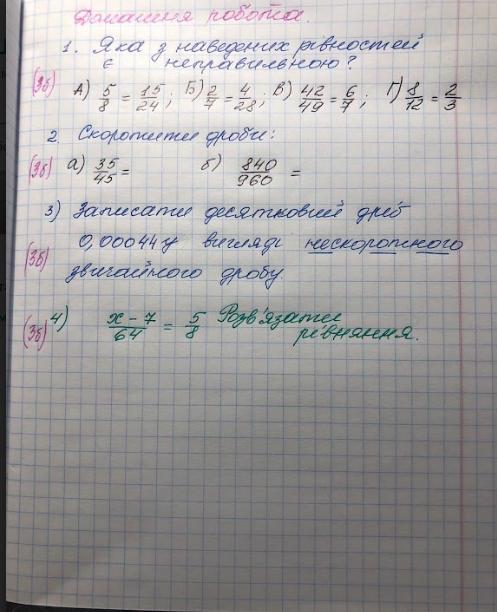 Домашня робота.
1. Яка з наведених рівностей
є неправильною?
(3б) А) 5/8 = 15/24; Б) 2/7 = 4/28; В) 42/49 = 6/7; Г) 8/12 = 2/3
2. Скоротити дроби:
(3б) а) 35/45 = б) 840/960 =
3) Записати десятковий дріб
0,00044 у вигляді нескоротного
(3б) звичайного дробу.
(3б) 4) x - 7/64 = 5/8 Розв'язати
рівняння.